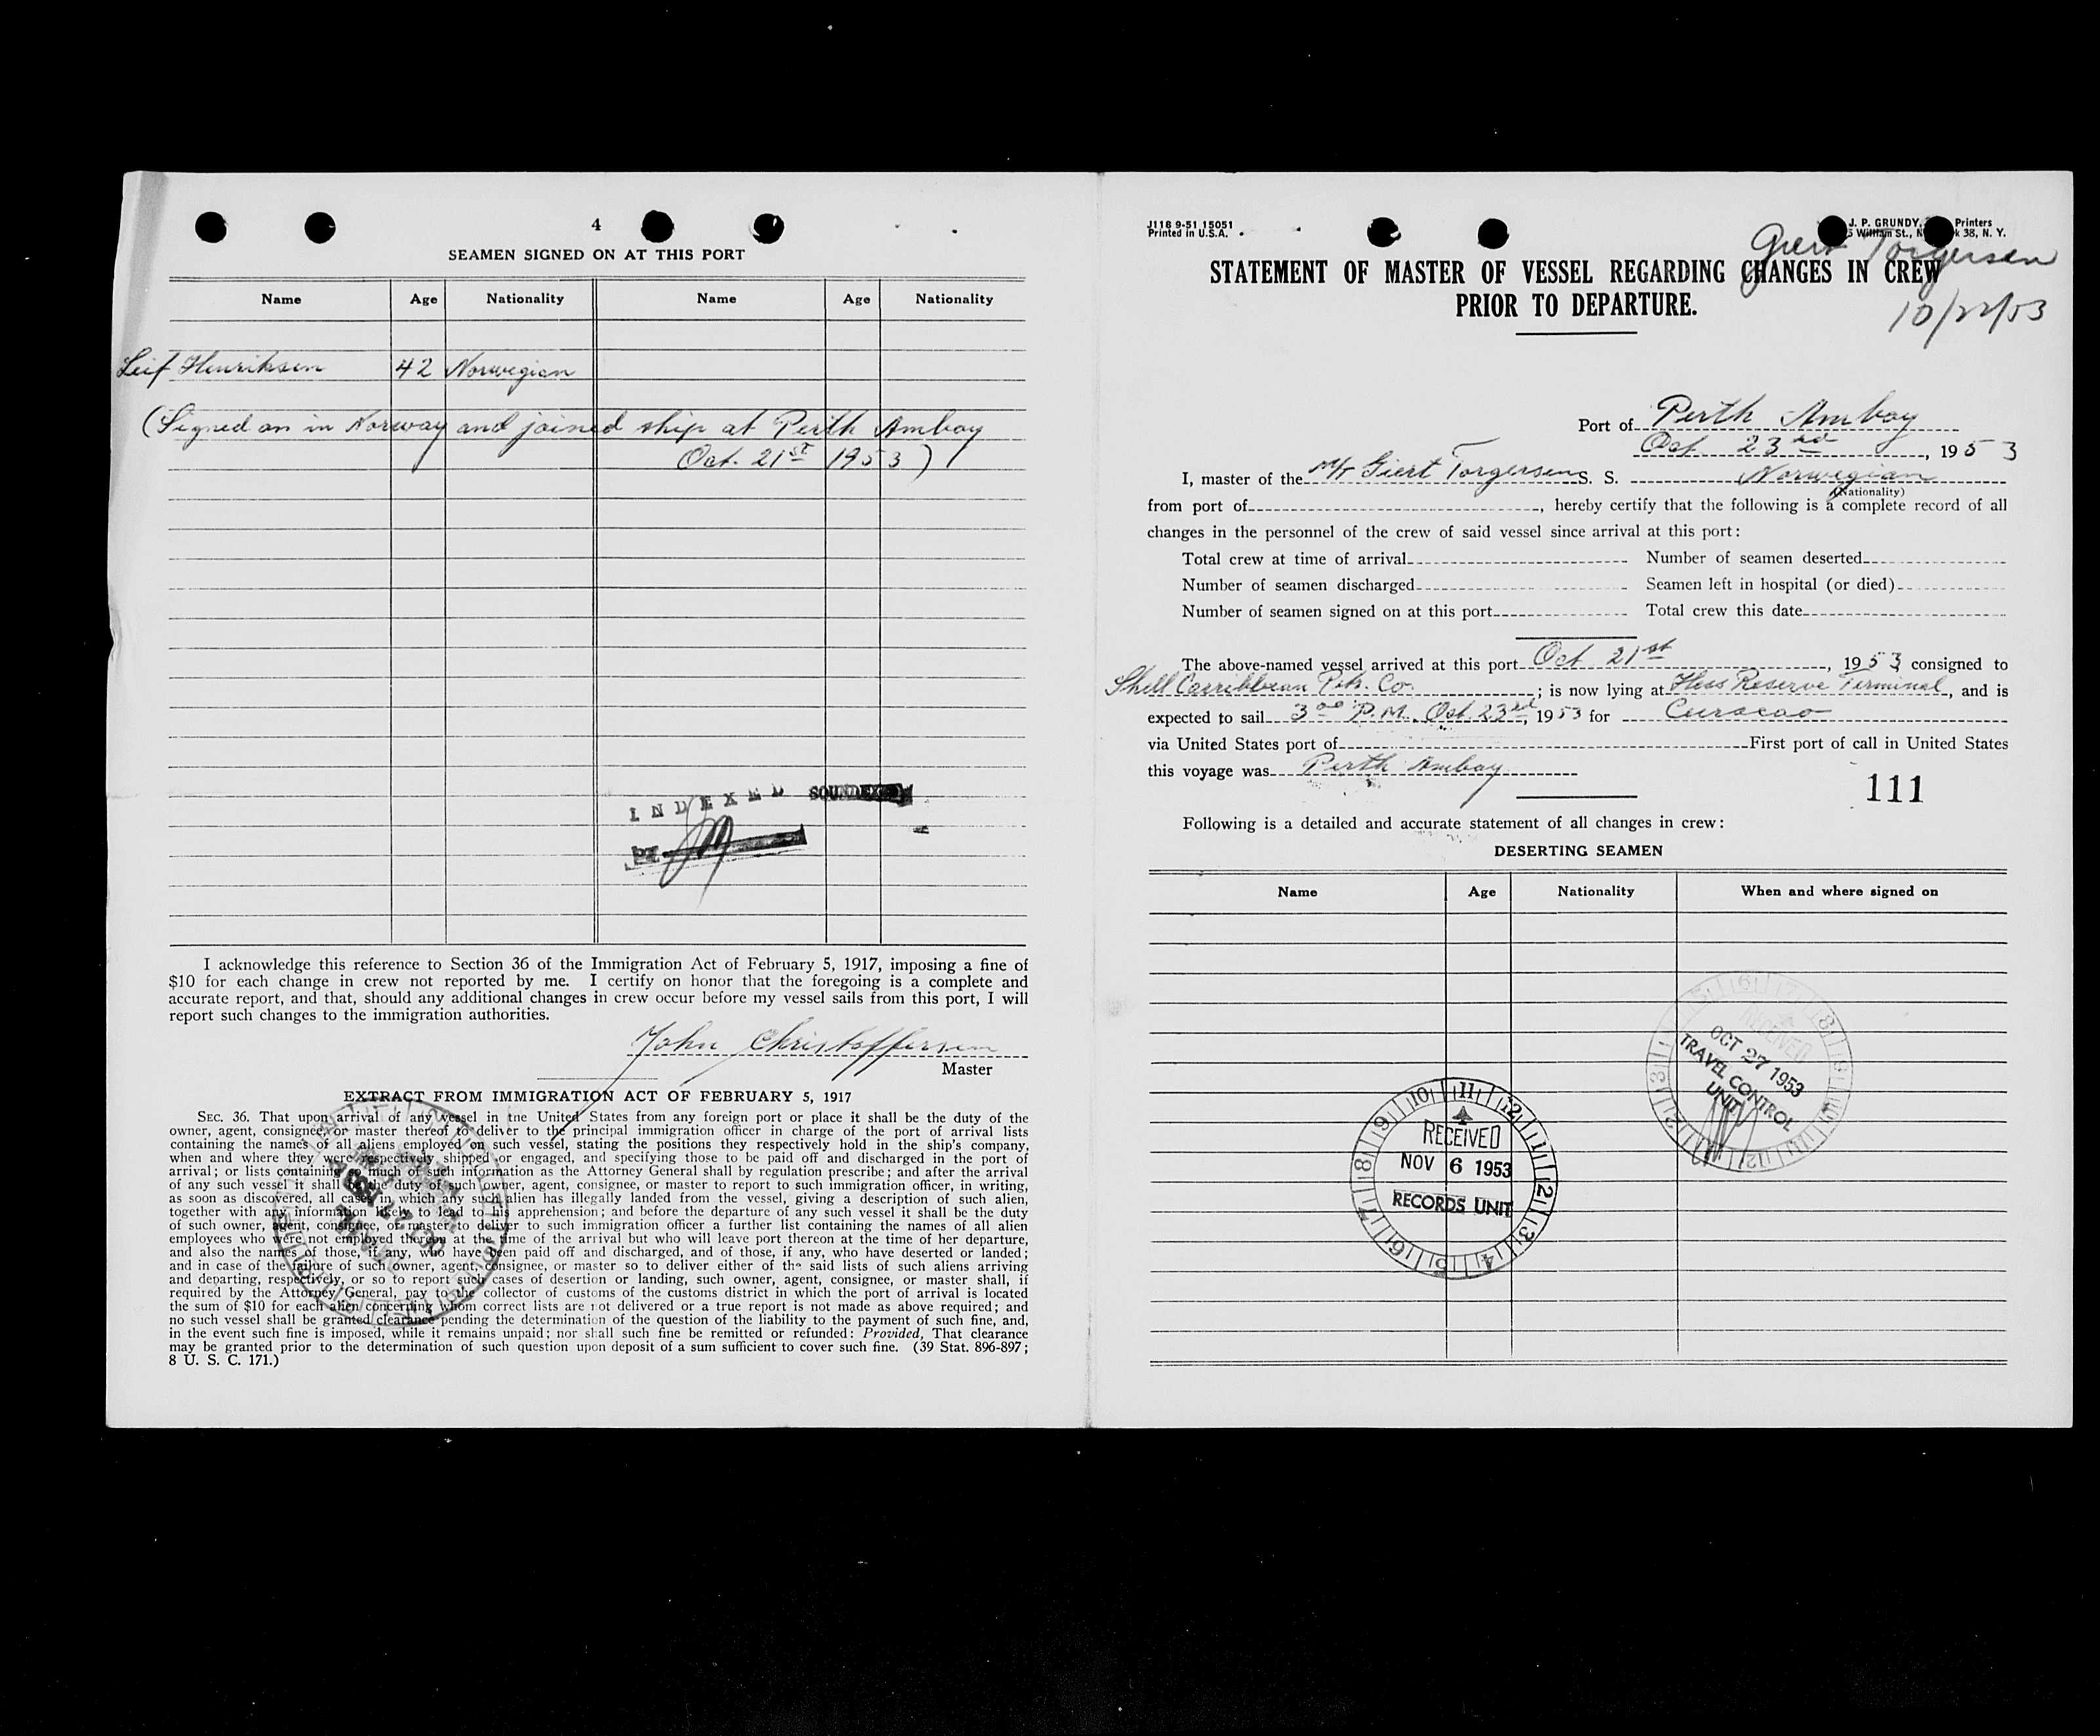 4
SEAMEN SIGNED ON AT THIS PORT
Name Age Nationality Name Age Nationality
Leif Henriksen 42 Norwegian
(Signed on in Norway and joined ship at Perth Amboy
Oct. 21st 1953)
INDEXED SOUNDEXED
BY
I acknowledge this reference to Section 36 of the Immigration Act of February 5, 1917, imposing a fine of
$10 for each change in crew not reported by me. I certify on honor that the foregoing is a complete and
accurate report, and that, should any additional changes in crew occur before my vessel sails from this port, I will
report such changes to the immigration authorities.
John Christoffersen
Master
EXTRACT FROM IMMIGRATION ACT OF FEBRUARY 5, 1917
SEC. 36. That upon arrival of any vessel in the United States from any foreign port or place it shall be the duty of the
owner, agent, consignee, or master thereof to deliver to the principal immigration officer in charge of the port of arrival lists
containing the names of all aliens employed on such vessel, stating the positions they respectively hold in the ship's company,
when and where they were respectively shipped or engaged, and specifying those to be paid off and discharged in the port of
arrival; or lists containing so much of such information as the Attorney General shall by regulation prescribe; and after the arrival
of any such vessel it shall be the duty of such owner, agent, consignee, or master to report to such immigration officer, in writing,
as soon as discovered, all cases in which any such alien has illegally landed from the vessel, giving a description of such alien,
together with any information likely to lead to his apprehension; and before the departure of any such vessel it shall be the duty
of such owner, agent, consignee, or master to deliver to such immigration officer a further list containing the names of all alien
employees who were not employed thereon at the time of the arrival but who will leave port thereon at the time of her departure,
and also the names of those, if any, who have been paid off and discharged, and of those, if any, who have deserted or landed;
and in case of the failure of such owner, agent, consignee, or master so to deliver either of the said lists of such aliens arriving
and departing, respectively, or so to report such cases of desertion or landing, such owner, agent, consignee, or master shall, if
required by the Attorney General, pay to the collector of customs of the customs district in which the port of arrival is located
the sum of $10 for each alien concerning whom correct lists are not delivered or a true report is not made as above required; and
no such vessel shall be granted clearance pending the determination of the question of the liability to the payment of such fine, and,
in the event such fine is imposed, while it remains unpaid; nor shall such fine be remitted or refunded: Provided, That clearance
may be granted prior to the determination of such question upon deposit of a sum sufficient to cover such fine. (39 Stat. 896-897;
8 U. S. C. 171.)
J118 9-51 15051
Printed in U.S.A.
J. P. GRUNDY, Printers
William St., N k 38, N. Y.
Giert Torgersen
10/22/53
STATEMENT OF MASTER OF VESSEL REGARDING CHANGES IN CREW
PRIOR TO DEPARTURE.
Port of Perth Amboy
Oct 23rd, 1953
I, master of the M/T Giert Torgersen S. S. Norwegian
(Nationality)
from port of, hereby certify that the following is a complete record of all
changes in the personnel of the crew of said vessel since arrival at this port:
Total crew at time of arrival Number of seamen deserted
Number of seamen discharged Seamen left in hospital (or died)
Number of seamen signed on at this port Total crew this date
The above-named vessel arrived at this port Oct 21st, 1953 consigned to
Shell Carribbean Petr. Co.; is now lying at Hess Reserve Terminal, and is
expected to sail 3 00 P.M. Oct. 23rd, 1953 for Curacao
via United States port of First port of call in United States
this voyage was Perth Amboy
111
Following is a detailed and accurate statement of all changes in crew:
DESERTING SEAMEN
Name Age Nationality When and where signed on
RECEIVED
OCT 27 1953
TRAVEL CONTROL
UNIT
RECEIVED
NOV 6 1953
RECORDS UNIT